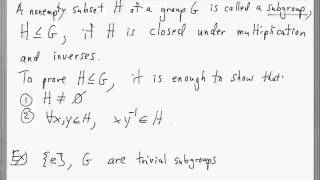 A nonempty subset H of a group G is called a subgroup,
H ≤ G, if H is closed under multiplication
and inverses.
To prove H ≤ G, it is enough to show that:
① H ≠ ∅
② ∀x,y∈H, xy⁻¹ ∈ H.
Ex) {e}, G are trivial subgroups